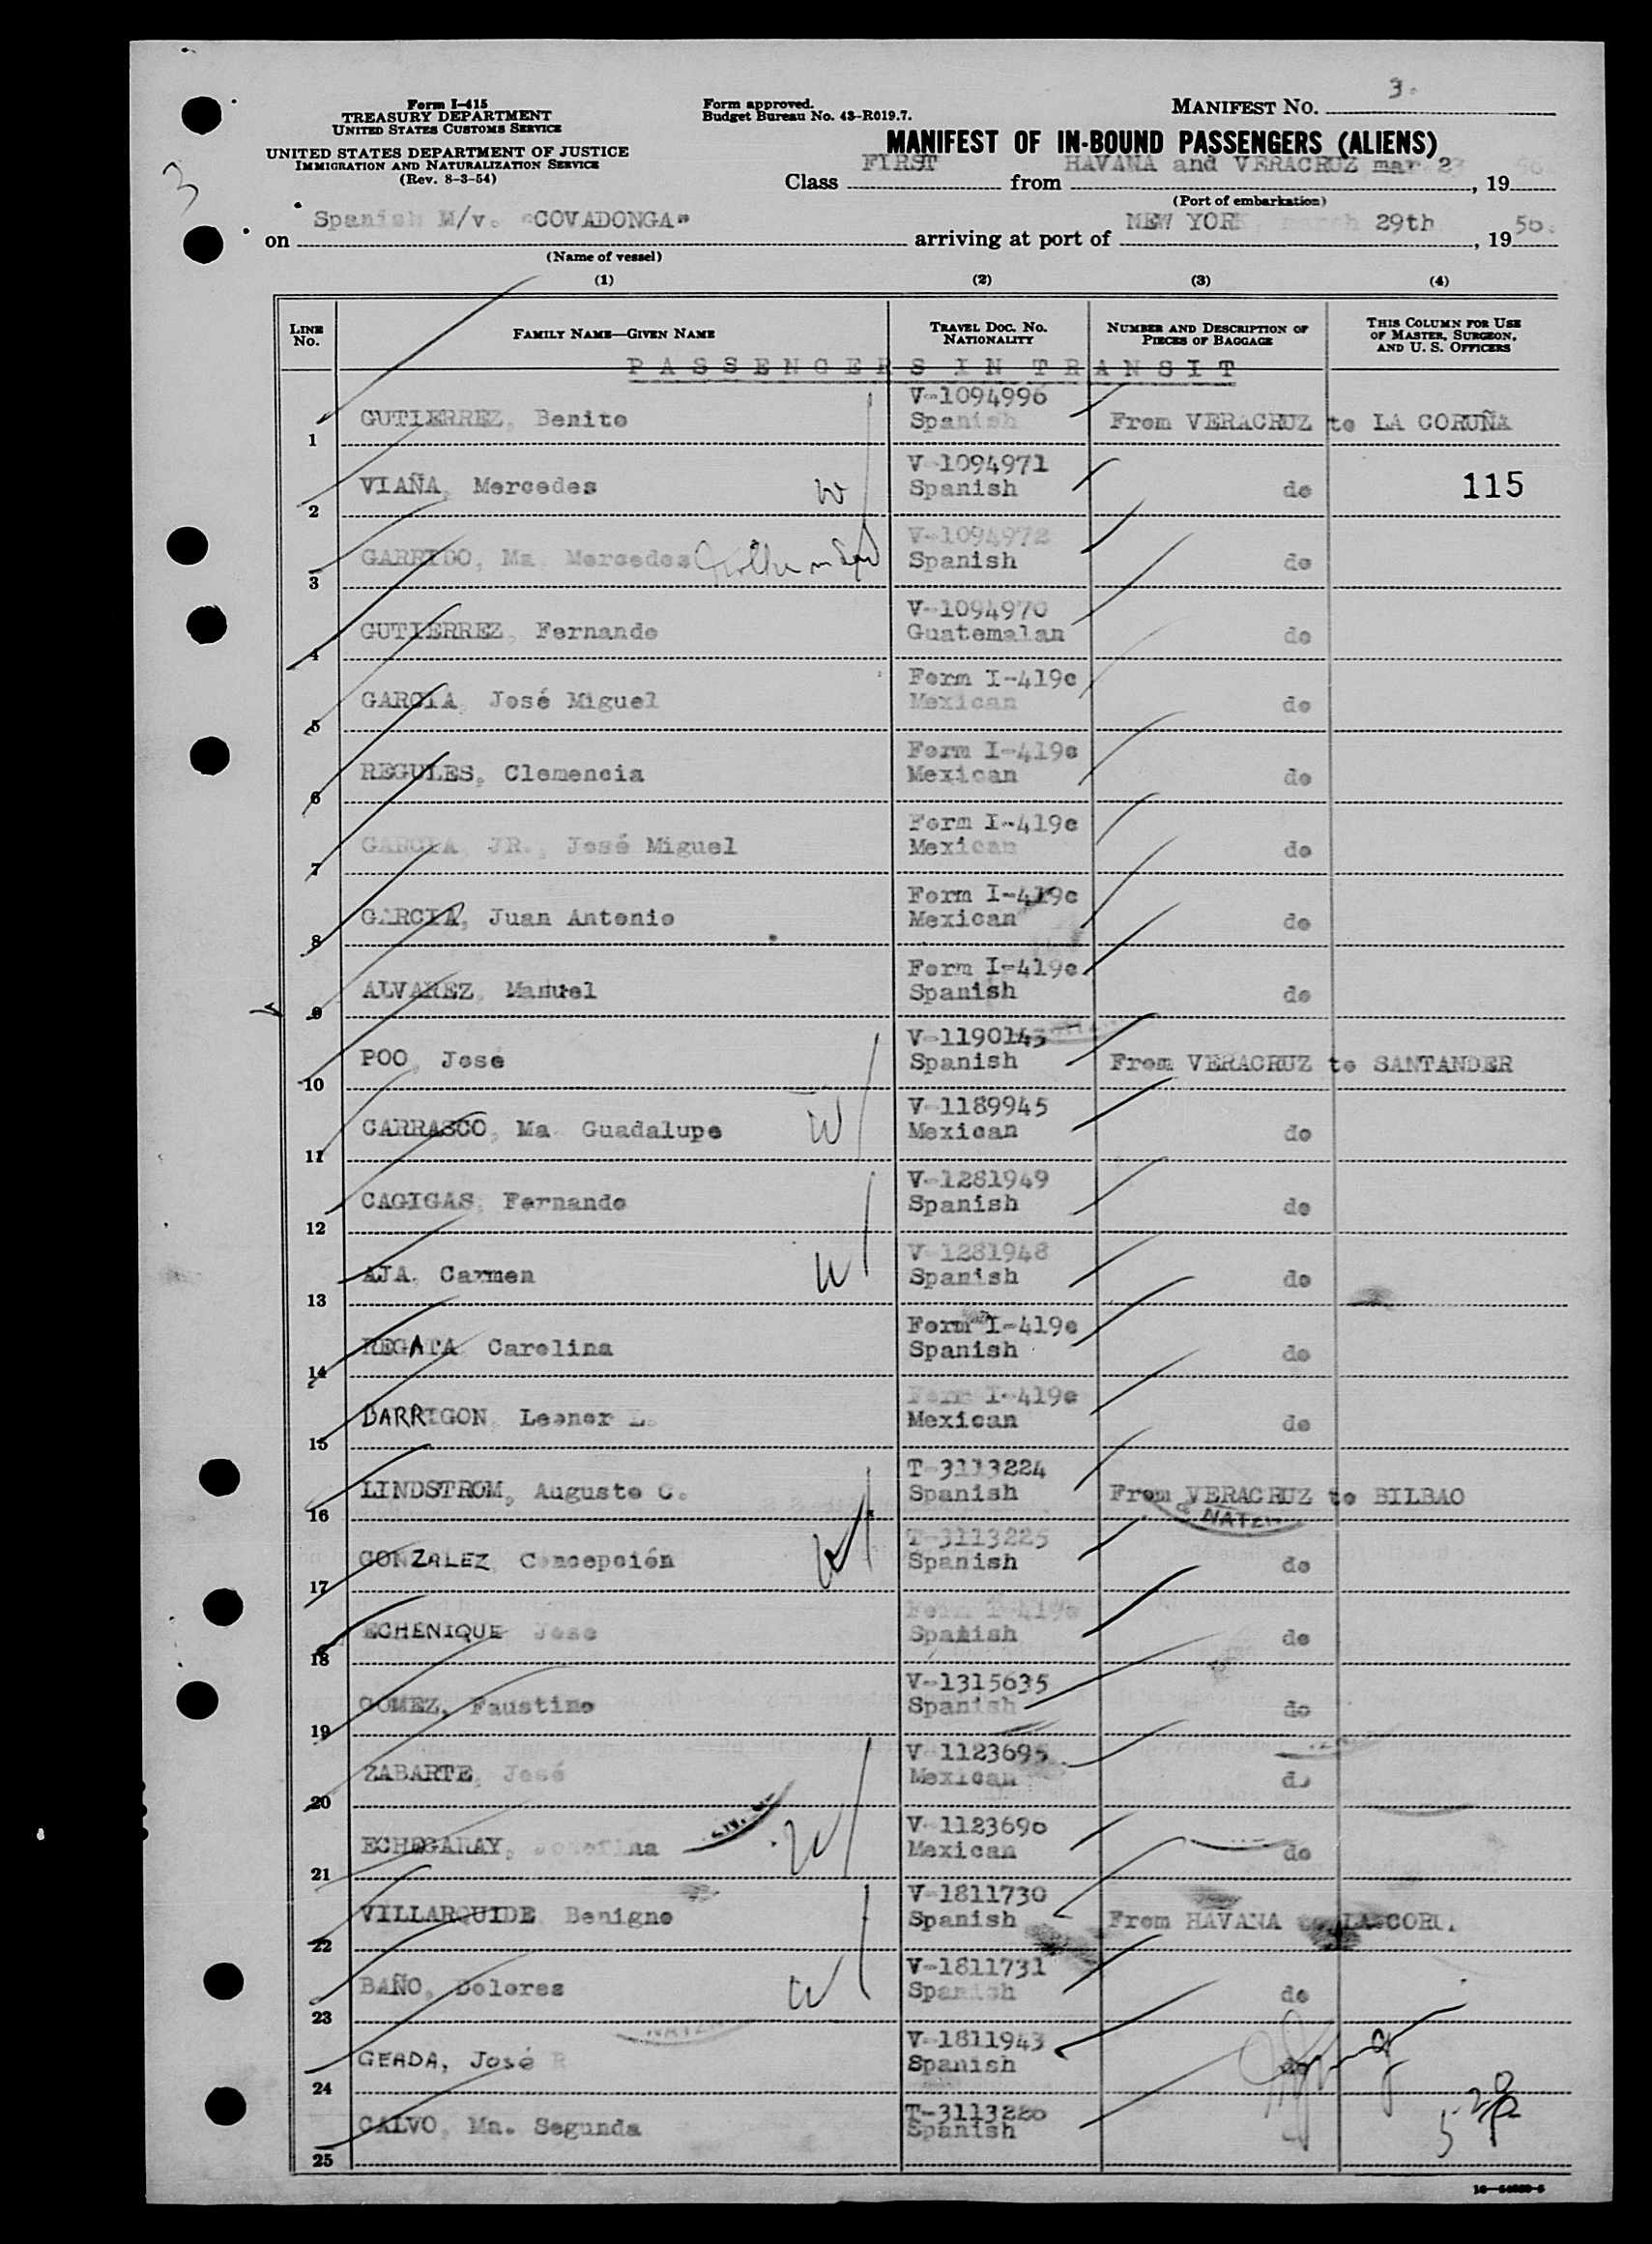 3.
Form I-415
TREASURY DEPARTMENT
UNITED STATES CUSTOMS SERVICE
UNITED STATES DEPARTMENT OF JUSTICE
IMMIGRATION AND NATURALIZATION SERVICE
(Rev. 8-3-54)
3
Form approved.
Budget Bureau No. 43-R019.7.
MANIFEST No.
MANIFEST OF IN-BOUND PASSENGERS (ALIENS)
Class FIRST from HAVANA and VERACRUZ mar 23, 1956
(Port of embarkation)
on Spanish M/v. "COVADONGA" arriving at port of NEW YORK, march 29th, 1956.
(Name of vessel)
(1) (2) (3) (4)
LINE No. FAMILY NAME—GIVEN NAME TRAVEL DOC. NO. NATIONALITY NUMBER AND DESCRIPTION OF PIECES OF BAGGAGE THIS COLUMN FOR USE OF MASTER, SURGEON, AND U. S. OFFICERS
PASSENGERS IN TRANSIT
1 GUTIERREZ, Benito V-1094996 Spanish From VERACRUZ to LA CORUÑA
2 VIAÑA, Mercedes W V-1094971 Spanish do 115
3 GARRIDO, Ma. Mercedes V-1094972 Spanish do
4 GUTIERREZ, Fernando V-1094970 Guatemalan do
5 GARCIA, José Miguel Form I-419c Mexican do
6 REGULES, Clemencia Form I-419c Mexican do
7 GARCIA, JR., José Miguel Form I-419c Mexican do
8 GARCIA, Juan Antonio Form I-419c Mexican do
9 ALVAREZ, Manuel Form I-419c Spanish do
10 POO, José V-1190143 Spanish From VERACRUZ to SANTANDER
11 CARRASCO, Ma. Guadalupe W V-1189945 Mexican do
12 CAGIGAS, Fernando V-1281949 Spanish do
13 AJA, Carmen W V-1281948 Spanish do
14 REGATA Carolina Form I-419c Spanish do
15 BARRIGON, Leonor L. Form I-419c Mexican do
16 LINDSTROM, Augusto C. T-3113224 Spanish From VERACRUZ to BILBAO
& NATZN
17 GONZALEZ, Concepción W T-3113225 Spanish do
18 ECHENIQUE José Form I-419c Spanish do
19 GOMEZ, Faustino V-1315635 Spanish do
20 ZABARTE, José V-1123695 Mexican do
21 ECHEGARAY, Josefina W V-1123690 Mexican do
22 VILLARQUIDE Benigno V-1811730 Spanish From HAVANA to LA CORU
23 BAÑO, Dolores W V-1811731 Spanish do
24 GEADA, José R V-1811943 Spanish do
25 CALVO, Ma. Segunda T-3113280 Spanish